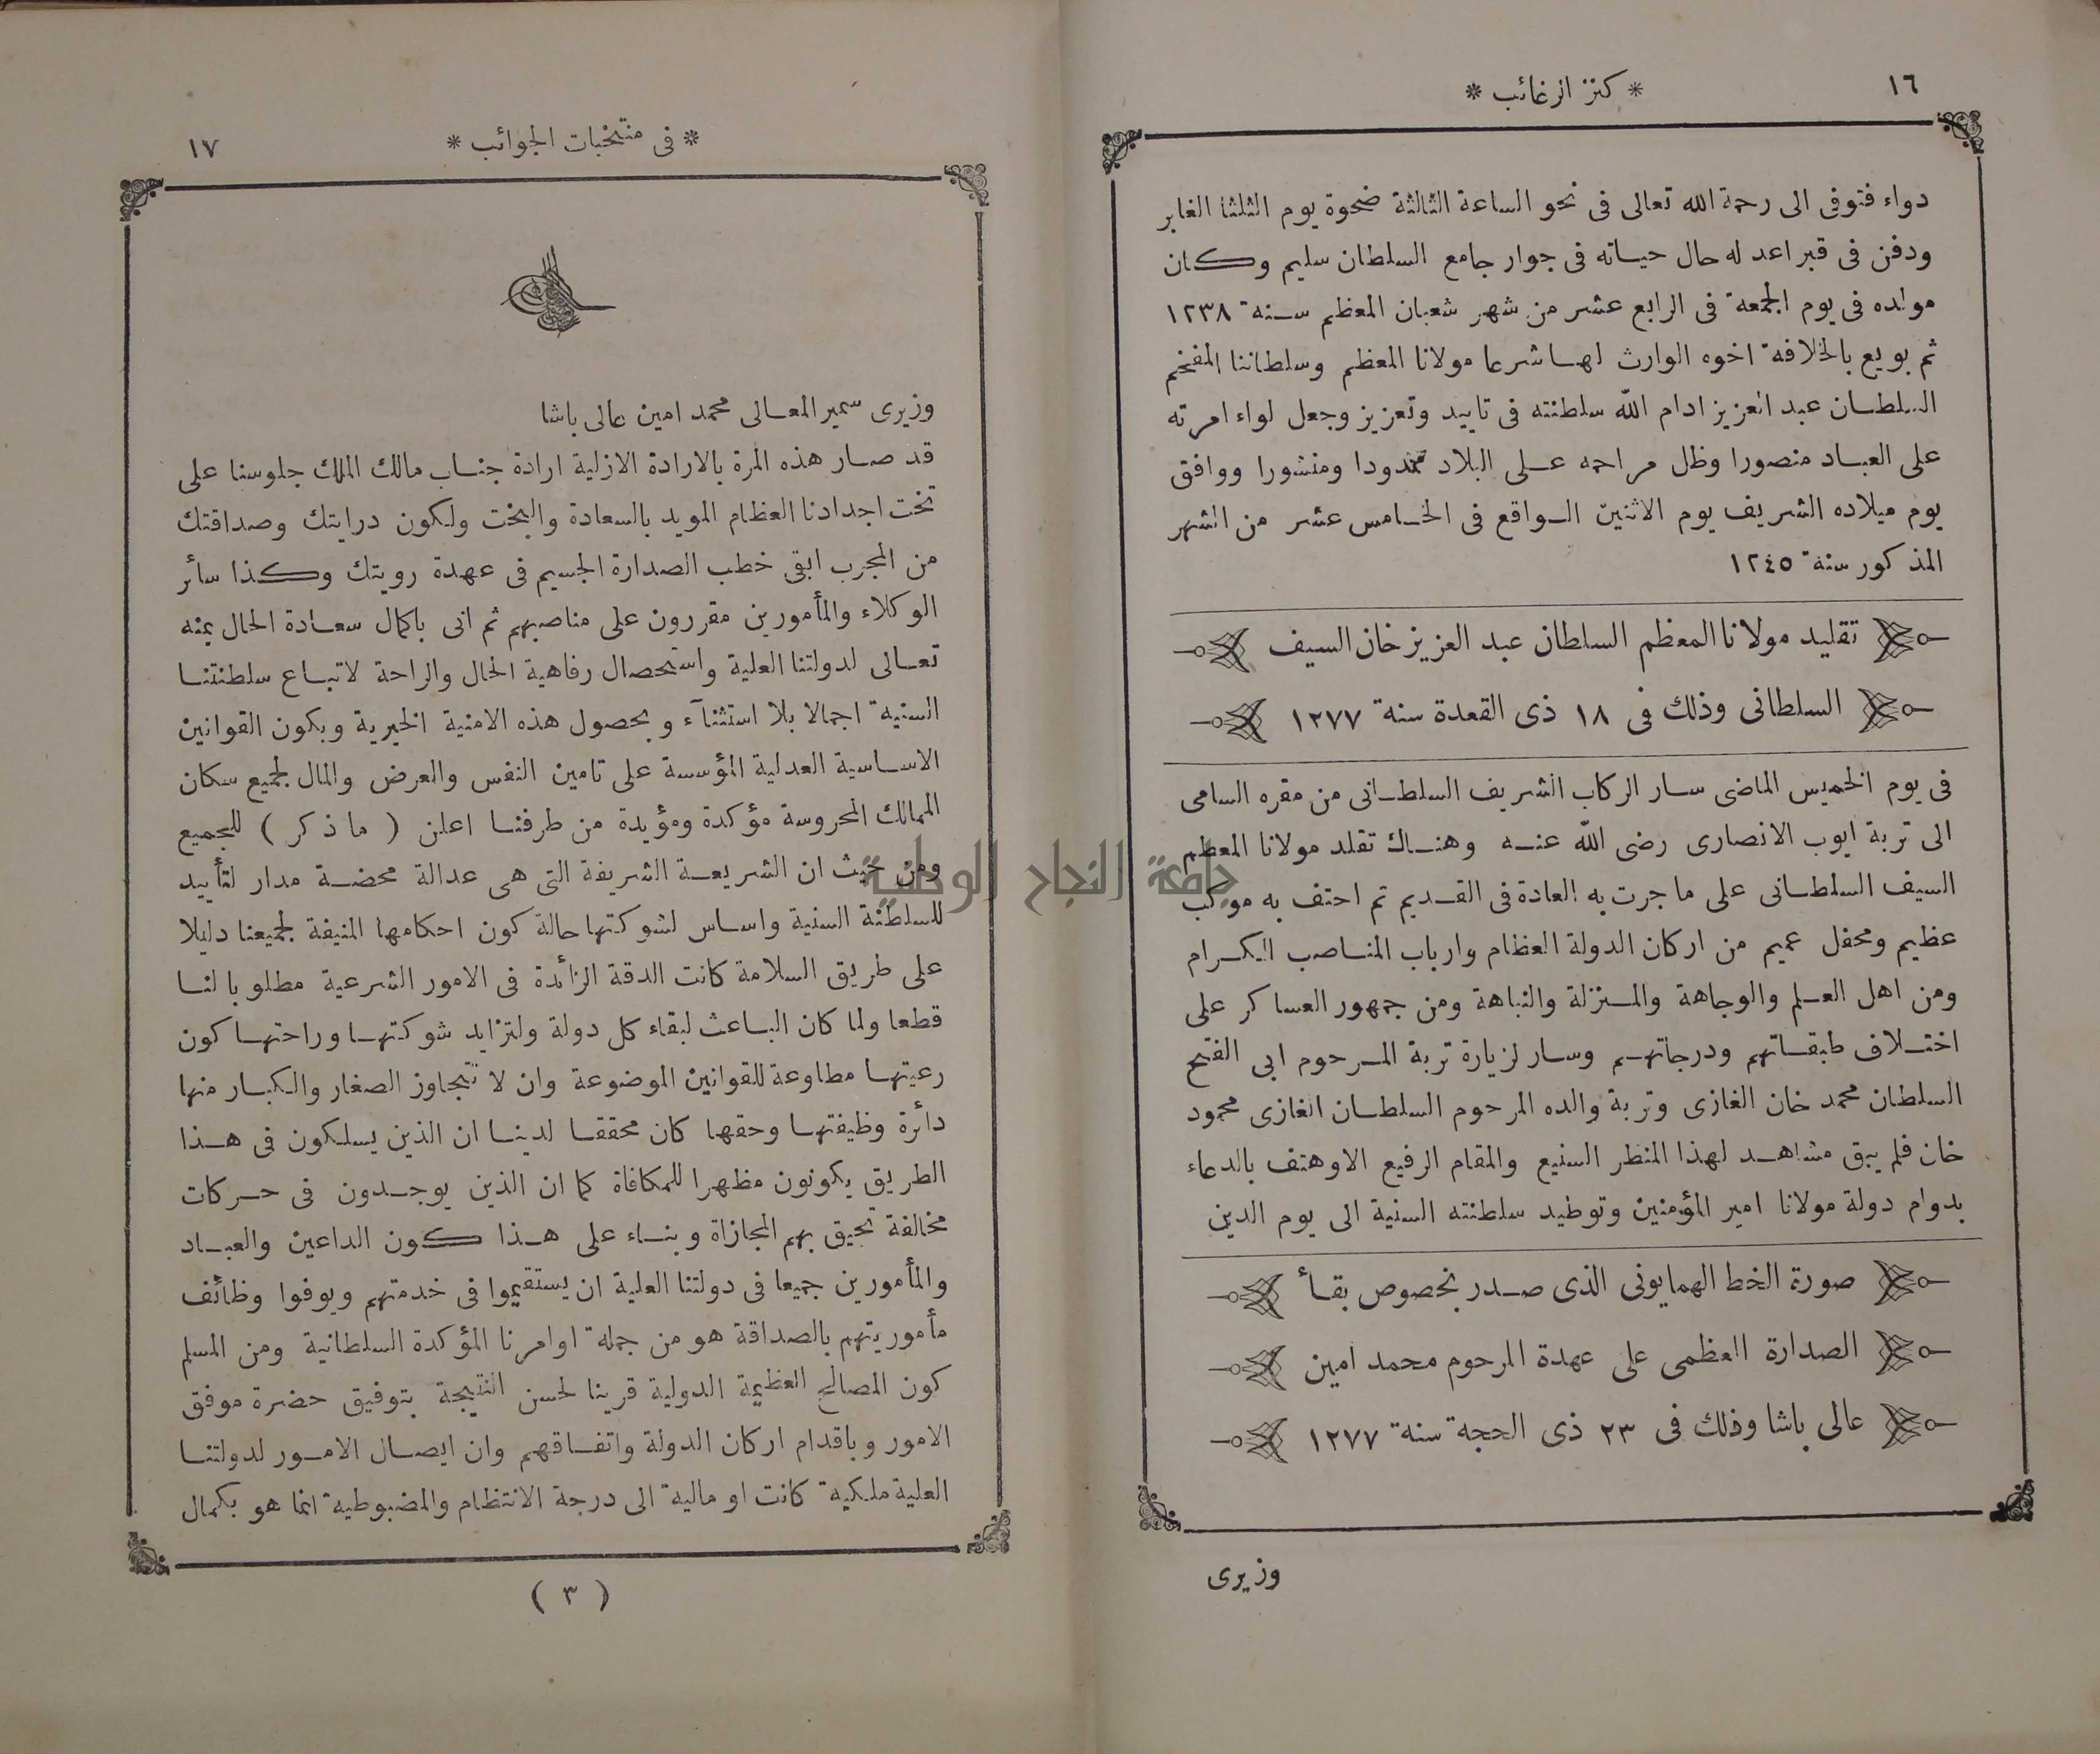 ١٦
* كنز الرغائب *
دواء فتوفى الى رحمة الله تعالى فى نحو الساعة الثالثة ضحوة يوم الثلثا الغابر
ودفن فى قبر اعد له حال حياته فى جوار جامع السلطان سليم وكان
مولده فى يوم الجمعة فى الرابع عشر من شهر شعبان المعظم سنة ١٢٣٨
ثم بويع بالخلافة اخوه الوارث لها شرعا مولانا المعظم وسلطاننا المفخم
السلطان عبد العزيز ادام الله سلطنته فى تاييد وتعزيز وجعل لواء امرته
على العباد منصورا وظل مراحمه على البلاد ممدودا ومنشورا ووافق
يوم ميلاده الشريف يوم الاثنين الواقع فى الخامس عشر من الشهر
المذكور سنة ١٢٤٥
تقليد مولانا المعظم السلطان عبد العزيز خان السيف
السلطانى وذلك فى ١٨ ذى القعدة سنة ١٢٧٧
فى يوم الخميس الماضى سار الركاب الشريف السلطانى من مقره السامى
الى تربة ايوب الانصارى رضى الله عنه وهناك تقلد مولانا المعظم
السيف السلطانى على ما جرت به العادة فى القديم ثم احتف به موكب
عظيم ومحفل عميم من اركان الدولة العظام وارباب المناصب الكرام
ومن اهل العلم والوجاهة والمنزلة والنباهة ومن جمهور العساكر على
اختلاف طبقاتهم ودرجاتهم وسار لزيارة تربة المرحوم ابى الفتح
السلطان محمد خان الغازى وتربة والده المرحوم السلطان الغازى محمود
خان فلم يبق مشاهد لهذا المنظر السنيع والمقام الرفيع الا وهتف بالدعاء
بدوام دولة مولانا امير المؤمنين وتوطيد سلطنته السنية الى يوم الدين
صورة الخط الهمايونى الذى صدر بخصوص بقأ
الصدارة العظمى على عهدة المرحوم محمد امين
عالى باشا وذلك فى ٢٣ ذى الحجة سنة ١٢٧٧
وزيرى
* فى منتخبات الجوائب *
١٧
وزيرى سمير المعالى محمد امين عالى باشا
قد صار هذه المرة بالارادة الازلية ارادة جناب مالك الملك جلوسنا على
تخت اجدادنا العظام المويد بالسعادة والبخت ولكون درايتك وصداقتك
من المجرب ابقى خطب الصدارة الجسيم فى عهدة رويتك وكذا سائر
الوكلاء والمأمورين مقررون على مناصبهم ثم انى باكمال سعادة الحال بمنه
تعالى لدولتنا العلية واستحصال رفاهية الحال والراحة لاتباع سلطنتنا
السنية اجمالا بلا استثنآء وبحصول هذه الامنية الخيرية وبكون القوانين
الاساسية العدلية المؤسسة على تامين النفس والعرض والمال لجميع سكان
الممالك المحروسة مؤكدة ومؤيدة من طرفنا اعلن ( ما ذكر ) للجميع
ومن حيث ان الشريعة الشريفة التى هى عدالة محضة مدار لتأييد
للسلطنة السنية واساس لشوكتها حالة كون احكامها المنيفة لجميعنا دليلا
على طريق السلامة كانت الدقة الزائدة فى الامور الشرعية مطلوبا لنا
قطعا ولما كان الباعث لبقاء كل دولة ولتزايد شوكتها وراحتها كون
رعيتها مطاوعة للقوانين الموضوعة وان لا تتجاوز الصغار والكبار منها
دائرة وظيفتها وحقها كان محققا لدينا ان الذين يسلكون فى هذا
الطريق يكونون مظهرا للمكافاة كما ان الذين يوجدون فى حركات
مخالفة تحيق بهم المجازاة وبناء على هذا كون الداعين والعباد
والمأمورين جميعا فى دولتنا العلية ان يستقيموا فى خدمتهم ويوفوا وظائف
مأموريتهم بالصداقة هو من جملة اوامرنا المؤكدة السلطانية ومن المسلم
كون المصالح العظيمة الدولية قرينا لحسن النتيجة بتوفيق حضرة موفق
الامور وباقدام اركان الدولة واتفاقهم وان ايصال الامور لدولتنا
العلية ملكية كانت او مالية الى درجة الانتظام والمضبوطية انما هو بكمال
( ٣ )
جامعة النجاح الوطنية